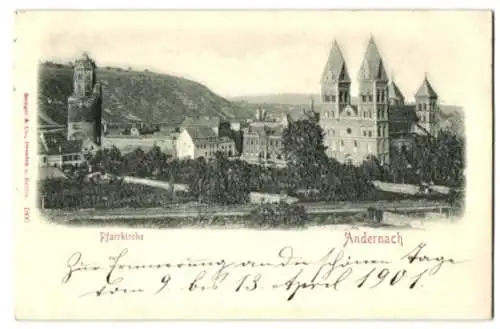 Stengel & Co., Dresden u. Berlin.
Pfarrkirche
Andernach
Zur Erinnerung an die schönen Tage
vom 9 bis 13 April 1901